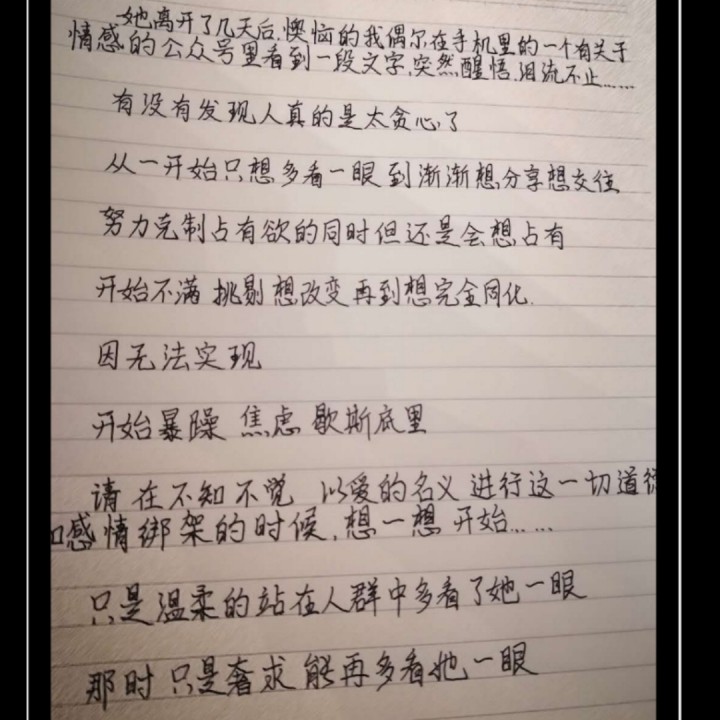 她离开了几天后，懊恼的我偶尔在手机里的一个有关于
情感的公众号里看到一段文字，突然醒悟，泪流不止……
有没有发现人真的是太贪心了
从一开始只想多看一眼到渐渐想分享想交往
努力克制占有欲的同时但还是会想占有
开始不满 挑剔 想改变再到想完全同化.
因无法实现
开始暴躁 焦虑 歇斯底里
请在不知不觉 以爱的名义 进行这一切道德
和感情绑架的时候，想一想 开始……
只是温柔的站在人群中多看了她一眼
那时 只是奢求 能再多看她一眼